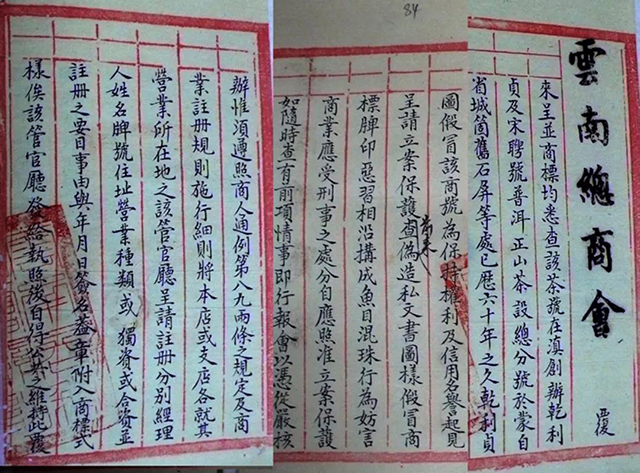 84
雲南總商會 覆
來呈並商標均悉查該茶號在滇創辦乾利
貞及宋聘號普洱正山茶設總分號於蒙自
省城箇舊石屏等處已歷六十年之久乾利貞
圖假冒該商號為保持權利及信用名譽起見
呈請立案保護前來查偽造私文書圖樣假冒商
標牌印惡習相沿搆成魚目混珠行為妨害
商業應受刑事之處分自應照准立案保護
如隨時查有前項情事即行報會以憑從嚴核
辦惟須遵照商人通例第八九兩條之規定及商
業註冊規則施行細則將本店或支店各就其
營業所在地之該管官廳呈請註冊分別經理
人姓名牌號住址營業種類或獨資或合資並
註冊之要目事由與年月日簽名蓋章附入商標式
樣俟該管官廳發給執照後自得之維持此覆